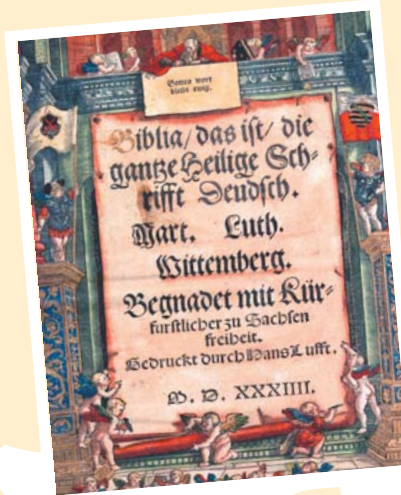 Gottes wort
bleibt ewig.
Biblia/das ist/ die
gantze Heilige Sch-
rifft Deudsch.
Mart. Luth.
Wittemberg.
Begnadet mit Kür-
furstlicher zu Sachsen
freiheit.
Gedruckt durch Hans Lufft.
M. D. XXXIIII.